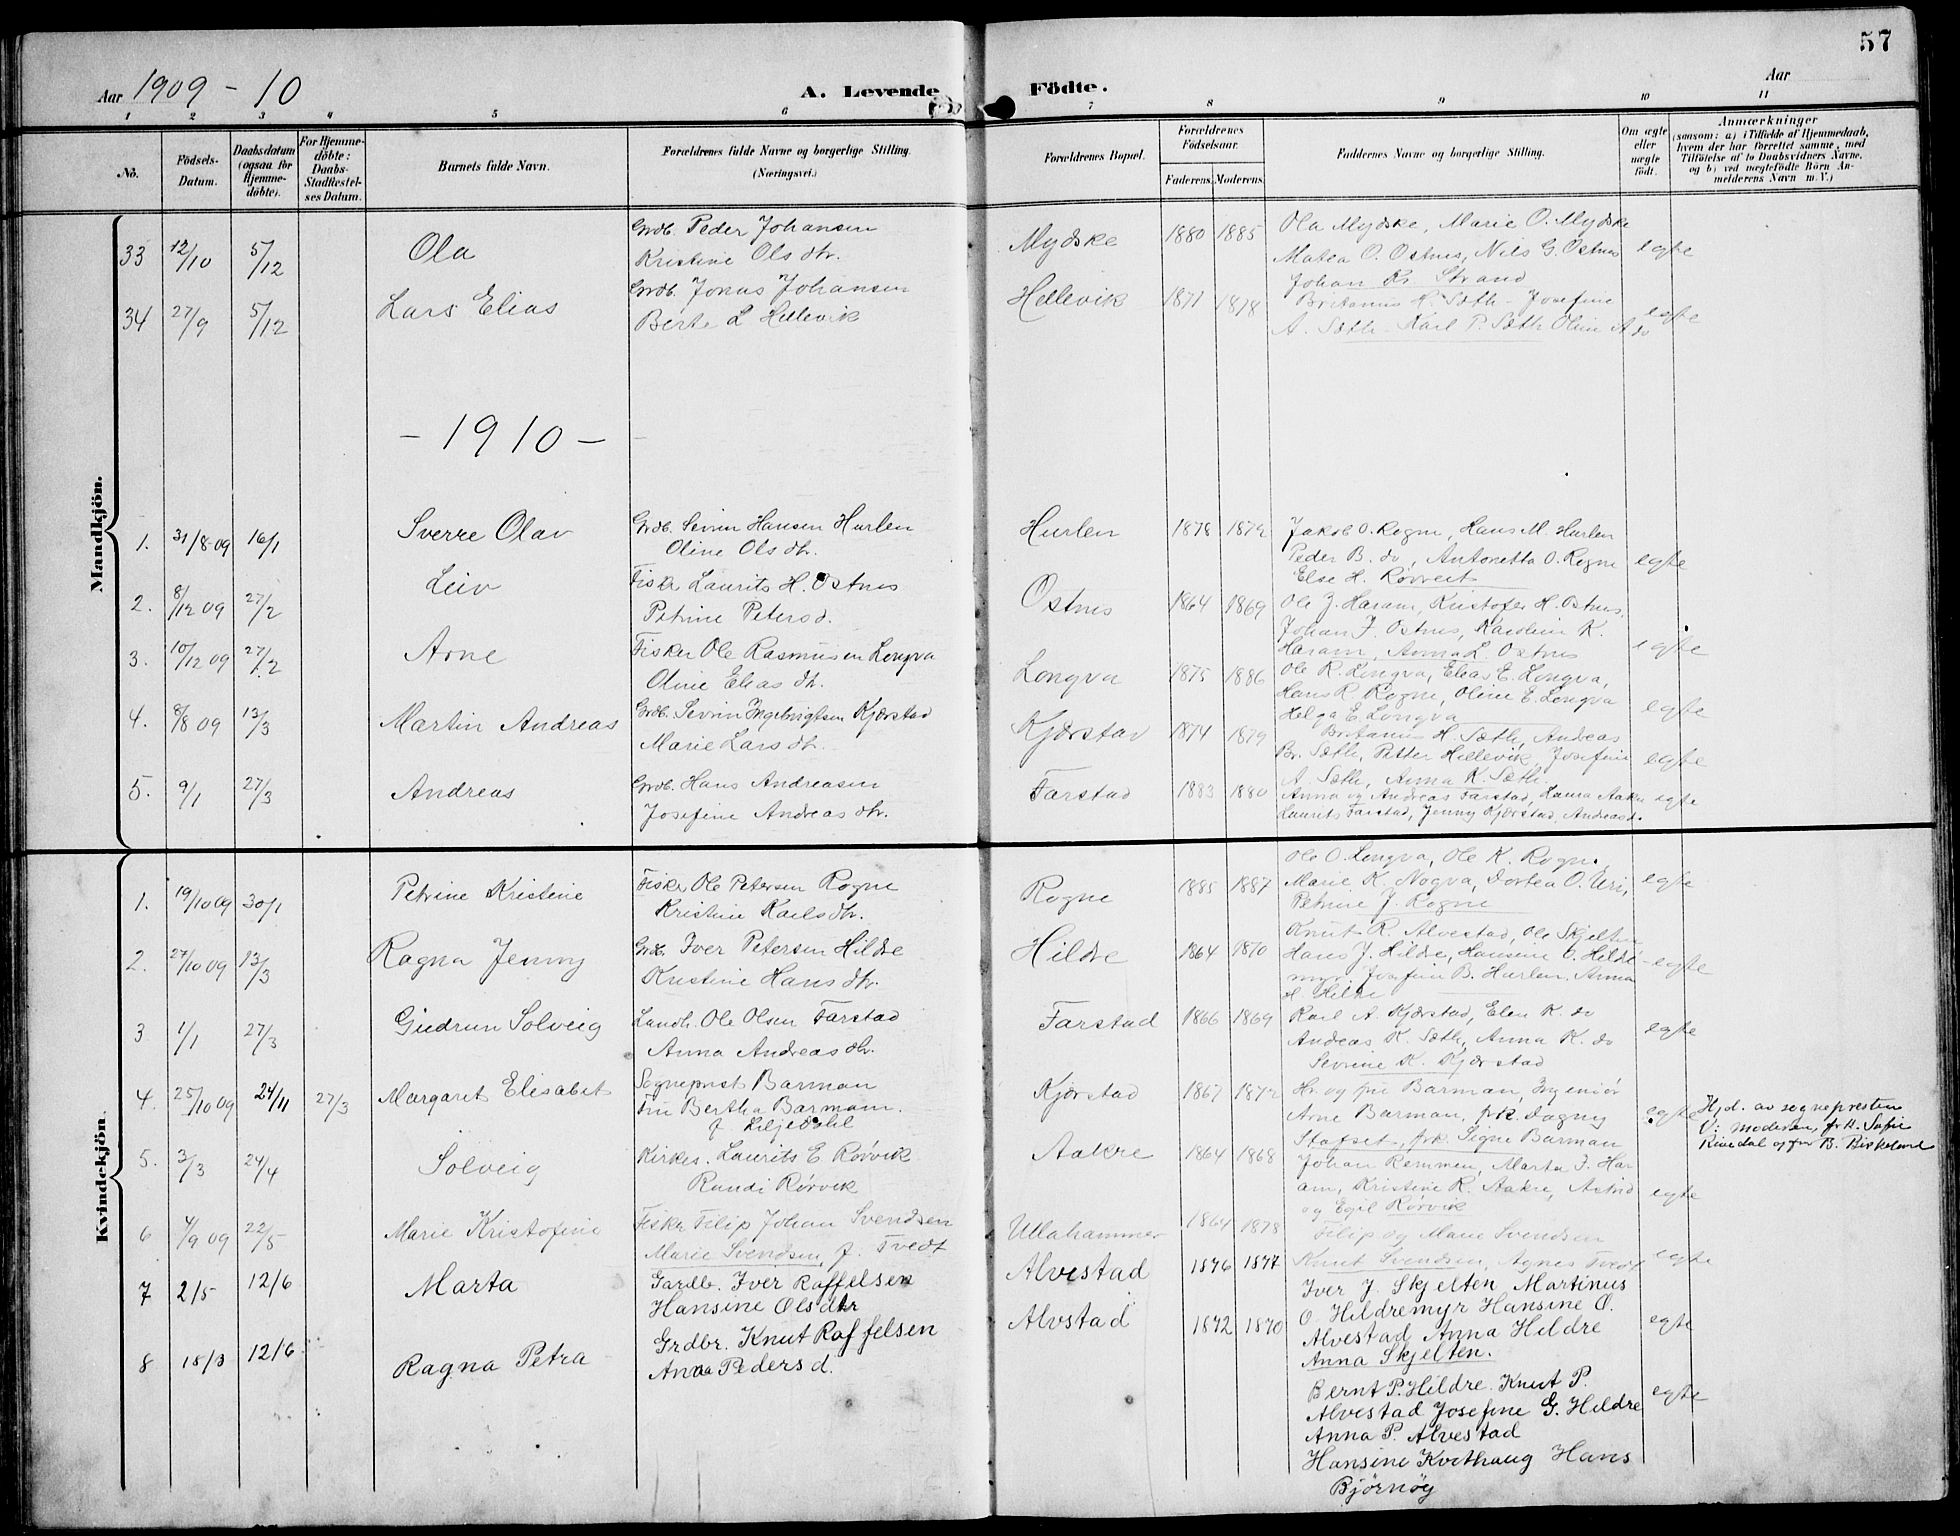 57
Aar 1909 - 10
A. Levende Födte.
Aar
1 2 3 4 5 6 7 8 9 10 11
No.
Födsels-Datum.
Daabsdatum (ogsaa for Hjemmedöbte).
For Hjemmedöbte: Daabs-Stadfæstelses Datum.
Barnets fulde Navn.
Forældrenes fulde Navne og borgerlige Stilling. (Næringsvei.)
Forældrenes Bopæl.
Forældrenes Födselsaar.
Faderens. Moderens.
Faddernes Navne og borgerlige Stilling.
Om ægte eller uægte födt.
Anmærkninger
(saasom: a) i Tilfælde af Hjemmedaab, hvem der har forrettet samme, med Tilföielse af to Daabsvidners Navne, og b) ved uægtefödte Börn Anmelderens Navn m. V.)
Mandkjön.
33 12/10 5/12 Ola
Grdb. Peder Johansen
Kristine Olsdtr.
Mydske 1880 1885
Ola Mydske, Marie O. Mydske
Matea O. Ostnes, Nils G. Ostnes
Johan Kr. Strand
egte
34 27/9 5/12 Lars Elias
Grdb. Jonas Johansen
Berte L Hellevik
Hellevik 1871 1878
Britanus H. Sæth - Josefine
A. Sæth - Karl P. Sæth Oline A do
egte
- 1910 -
1. 31/8 09 16/1 Sverre Olav
Grdb. Sevrin Hansen Hurlen
Oline Olsdtr.
Hurlen 1878 1872
Jakob O. Rogne, Hans M. Hurlen
Peder B. do, Antonetta O. Rogne
Else H. Rørveit
egte
2. 8/12 09 27/2 Leiv
Fisker Laurits H. Ostnes
Petrine Petersd.
Ostnes 1864 1869
Ole J. Haram, Kristofer H. Ostnes,
Johan J. Ostnes, Karoline K.
Haram, Anna L. Ostnes
egte
3. 10/12 09 27/2 Arne
Fisker Ole Rasmusen Longva
Oline Eliasdtr.
Longva 1875 1886
Ole R. Longva, Elias E. Longva,
Hans R. Rogne, Oline E. Longva
Helga E. Longva
egte
4. 8/8 09 13/3 Martin Andreas
Grdb. Sevrin Ingebrigtsen Kjærstad
Marie Larsdtr.
Kjærstad 1874 1879
Britanus H. Sæth, Andreas
Br. Sæth, Petter Hellevik, Josefine
A. Sæth, Anna K. Sæth.
egte
5. 9/1 27/3 Andreas
Grdb. Hans Andreasen
Josefine Andreasdtr.
Farstad 1883 1880
Anna og Andreas Farstad, Laura Aakre
Laurits Farstad, Jenny Kjærstad, Andreas d.
egte
Kvindekjön
1. 19/10 09 30/1 Petrine Kristine
Fisker Ole Petersen Rogne
Kristine Karlsdtr.
Rogne 1885 1887
Ole O. Longva, Ole K. Rogne,
Marie K. Nogva, Dortea O. Uri,
Petrine J. Rogne
egte
2. 27/10 09 13/3 Ragna Jenny
Grdb. Iver Petersen Hildre
Kristine Hansdtr.
Hildre 1864 1870
Knut R. Alvestad, Ole Skjelten
Hans J. Hildre, Hansine O. Hildre-
myr, Josefine B. Hurlen, Anna
H. Hildre
egte
3 1/1 27/3 Gudrun Solveig
Landh. Ole Olsen Farstad
Anna Andreasdtr.
Farstad 1866 1869
Karl A. Kjærstad, Elen K. do
Andeas K. Sæth, Anna K. do
Sevrine K. Kjærstad
egte
4. 25/10 09 24/11 27/3 Margaret Elisabet
Sogneprest Barman
Fru Bertha Barman.
f. Liljedahl
Kjærstad 1867 1872
Hr. og fru Barman, Ingeniør
Arne Barman, frk Dagny
Stafset, frk. Signe Barman
egte
Hjd. av sognepresten
V: moderen, fr. H. Sofie
Rivedal og fru B. Birkeland
5. 3/3 24/4 Solveig
Kirkes. Laurits E. Rørvik
Randi Rørvik
Aakre 1864 1868
Johan Remmen, Marta J. Har
am, Kristine R. Aakre, Astrid
og Egil Rørvik
egte
6 4/9 09 22/5 Marie Kristofine
Fisker Filip Johan Svendsen
Marie Svendsen, f. Tvedt
Ullahammer 1864 1878
Filip og Marie Svendsen
Knut Svendsen, Agnes Tvedt
egte
7 2/5 12/6 Marta
Gardbr. Iver Raffelsen
Hansine Olsdtr
Alvestad 1876 1877
Iver J. Skjelten Martinus
O. Hildremyr Hansine O.
Alvestad Anna Hildre
Anna Skjelten.
egte
8 15/3 12/6 Ragna Petra
Grdbr. Knut Raffelsen
Anna Pedersd.
Alvstad 1872 1870
Bernt P. Hildre. Knut P.
Alvestad Josefine G. Hildre
Anna P. Alvestad
Hansine Kvithaug Hans
Bjørnøy
egte